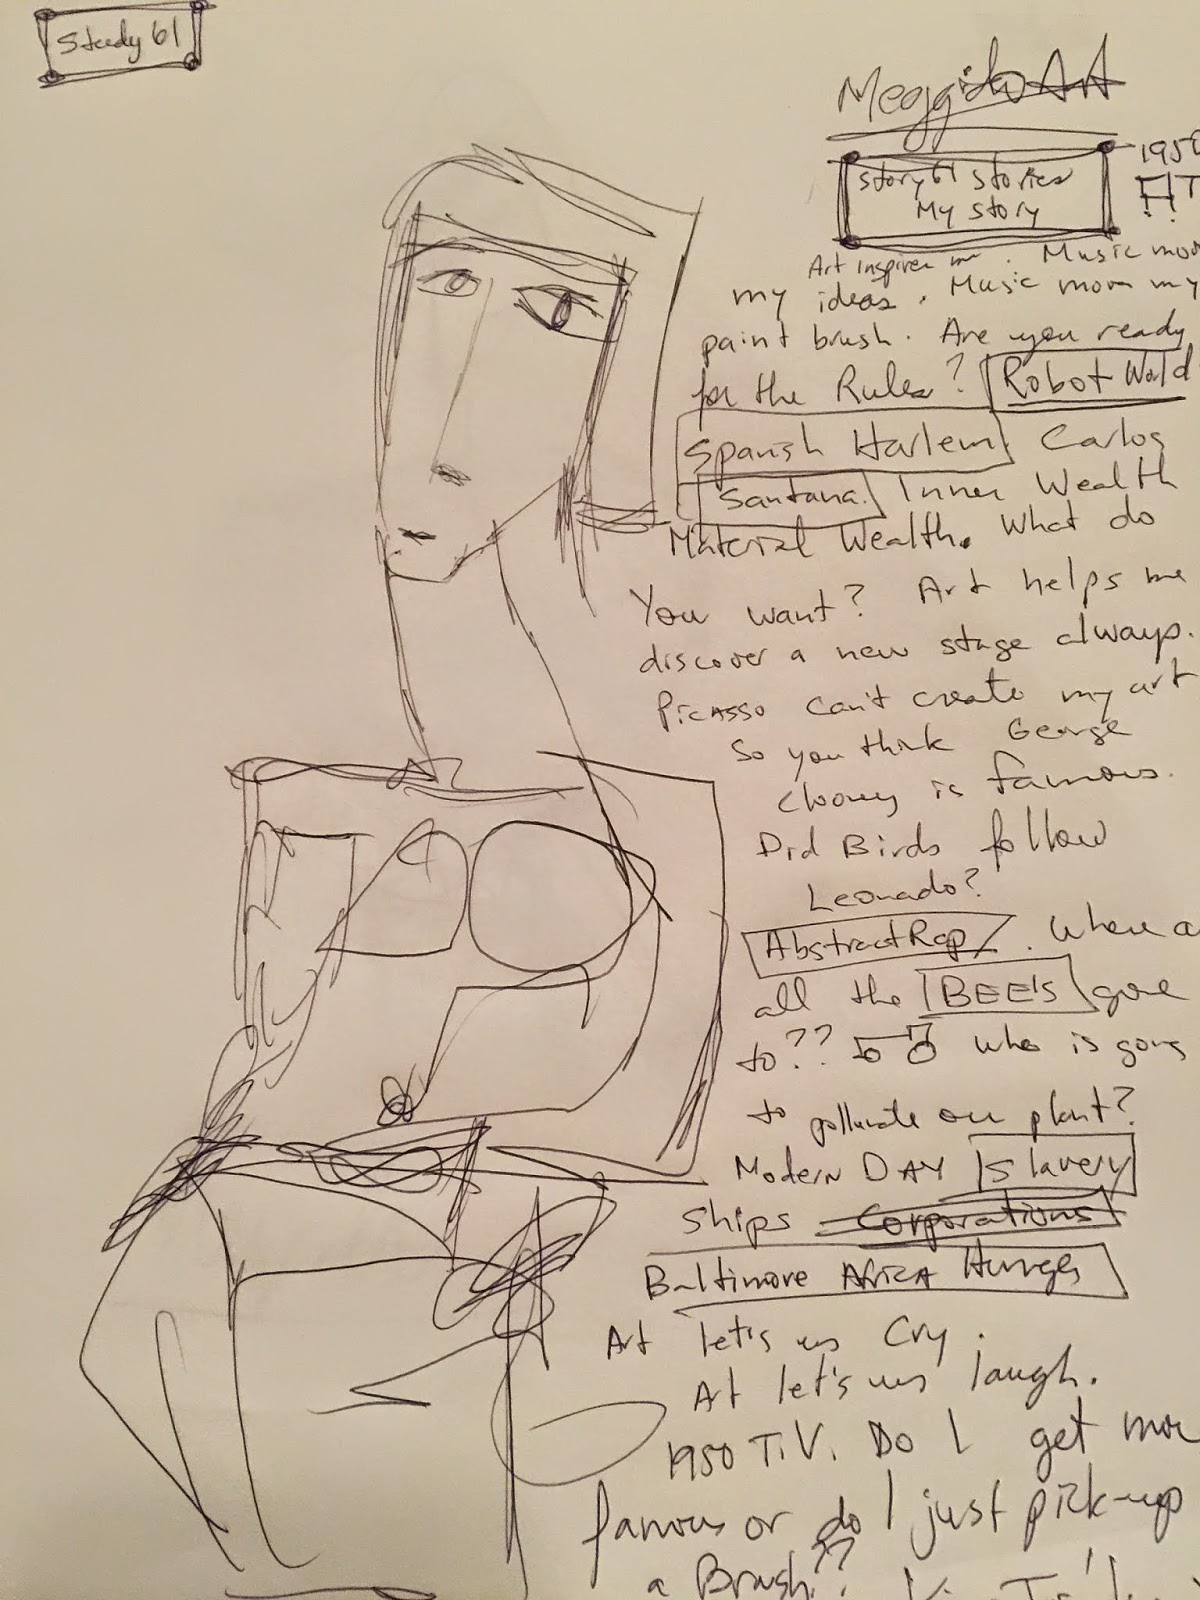 Study 61
Art
story 61 stories
My story
1950
Art inspires me. Music
my ideas. Music move my
paint brush. Are you ready
for the Rules? Robot World
Spanish Harlem Carlos
Santana. Inner Wealth
Material Wealth. What do
You want? Art helps me
discover a new stage always.
Picasso can't create my art
So you think George
Clooney is famous.
Did Birds follow
Leonado?
Abstract Rap. Where
all the BEE's gone
to?? who is going
to our plant?
Modern DAY Slavery
Ships Corporations
Baltimore AfricA
Art let's us Cry.
Art let's us laugh.
1950 T.V. Do I get more
famous or do I just pick-up
a Brush??